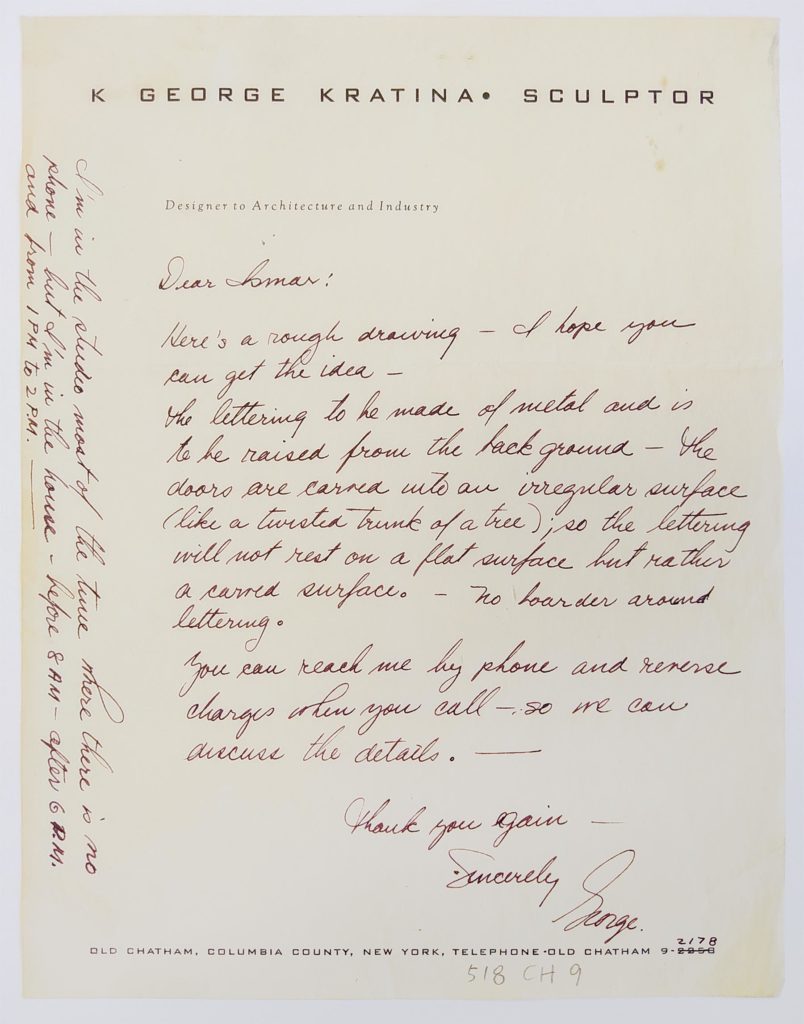 K GEORGE KRATINA • SCULPTOR
Designer to Architecture and Industry
Dear Ismar:
Here's a rough drawing — I hope you
can get the idea —
The lettering to be made of metal and is
to be raised from the back ground — The
doors are carved into an irregular surface
(like a twisted trunk of a tree); so the lettering
will not rest on a flat surface but rather
a carved surface. — No boarder around
lettering.
You can reach me by phone and reverse
charges when you call — so we can
discuss the details. —
Thank you again —
Sincerely
George.
2178
OLD CHATHAM, COLUMBIA COUNTY, NEW YORK, TELEPHONE-OLD CHATHAM 9-
518 CH 9
I'm in the studio most of the time where there is no
phone — but I'm in the house — before 8 AM — after 6 P.M.
and from 1 PM to 2 P.M. —